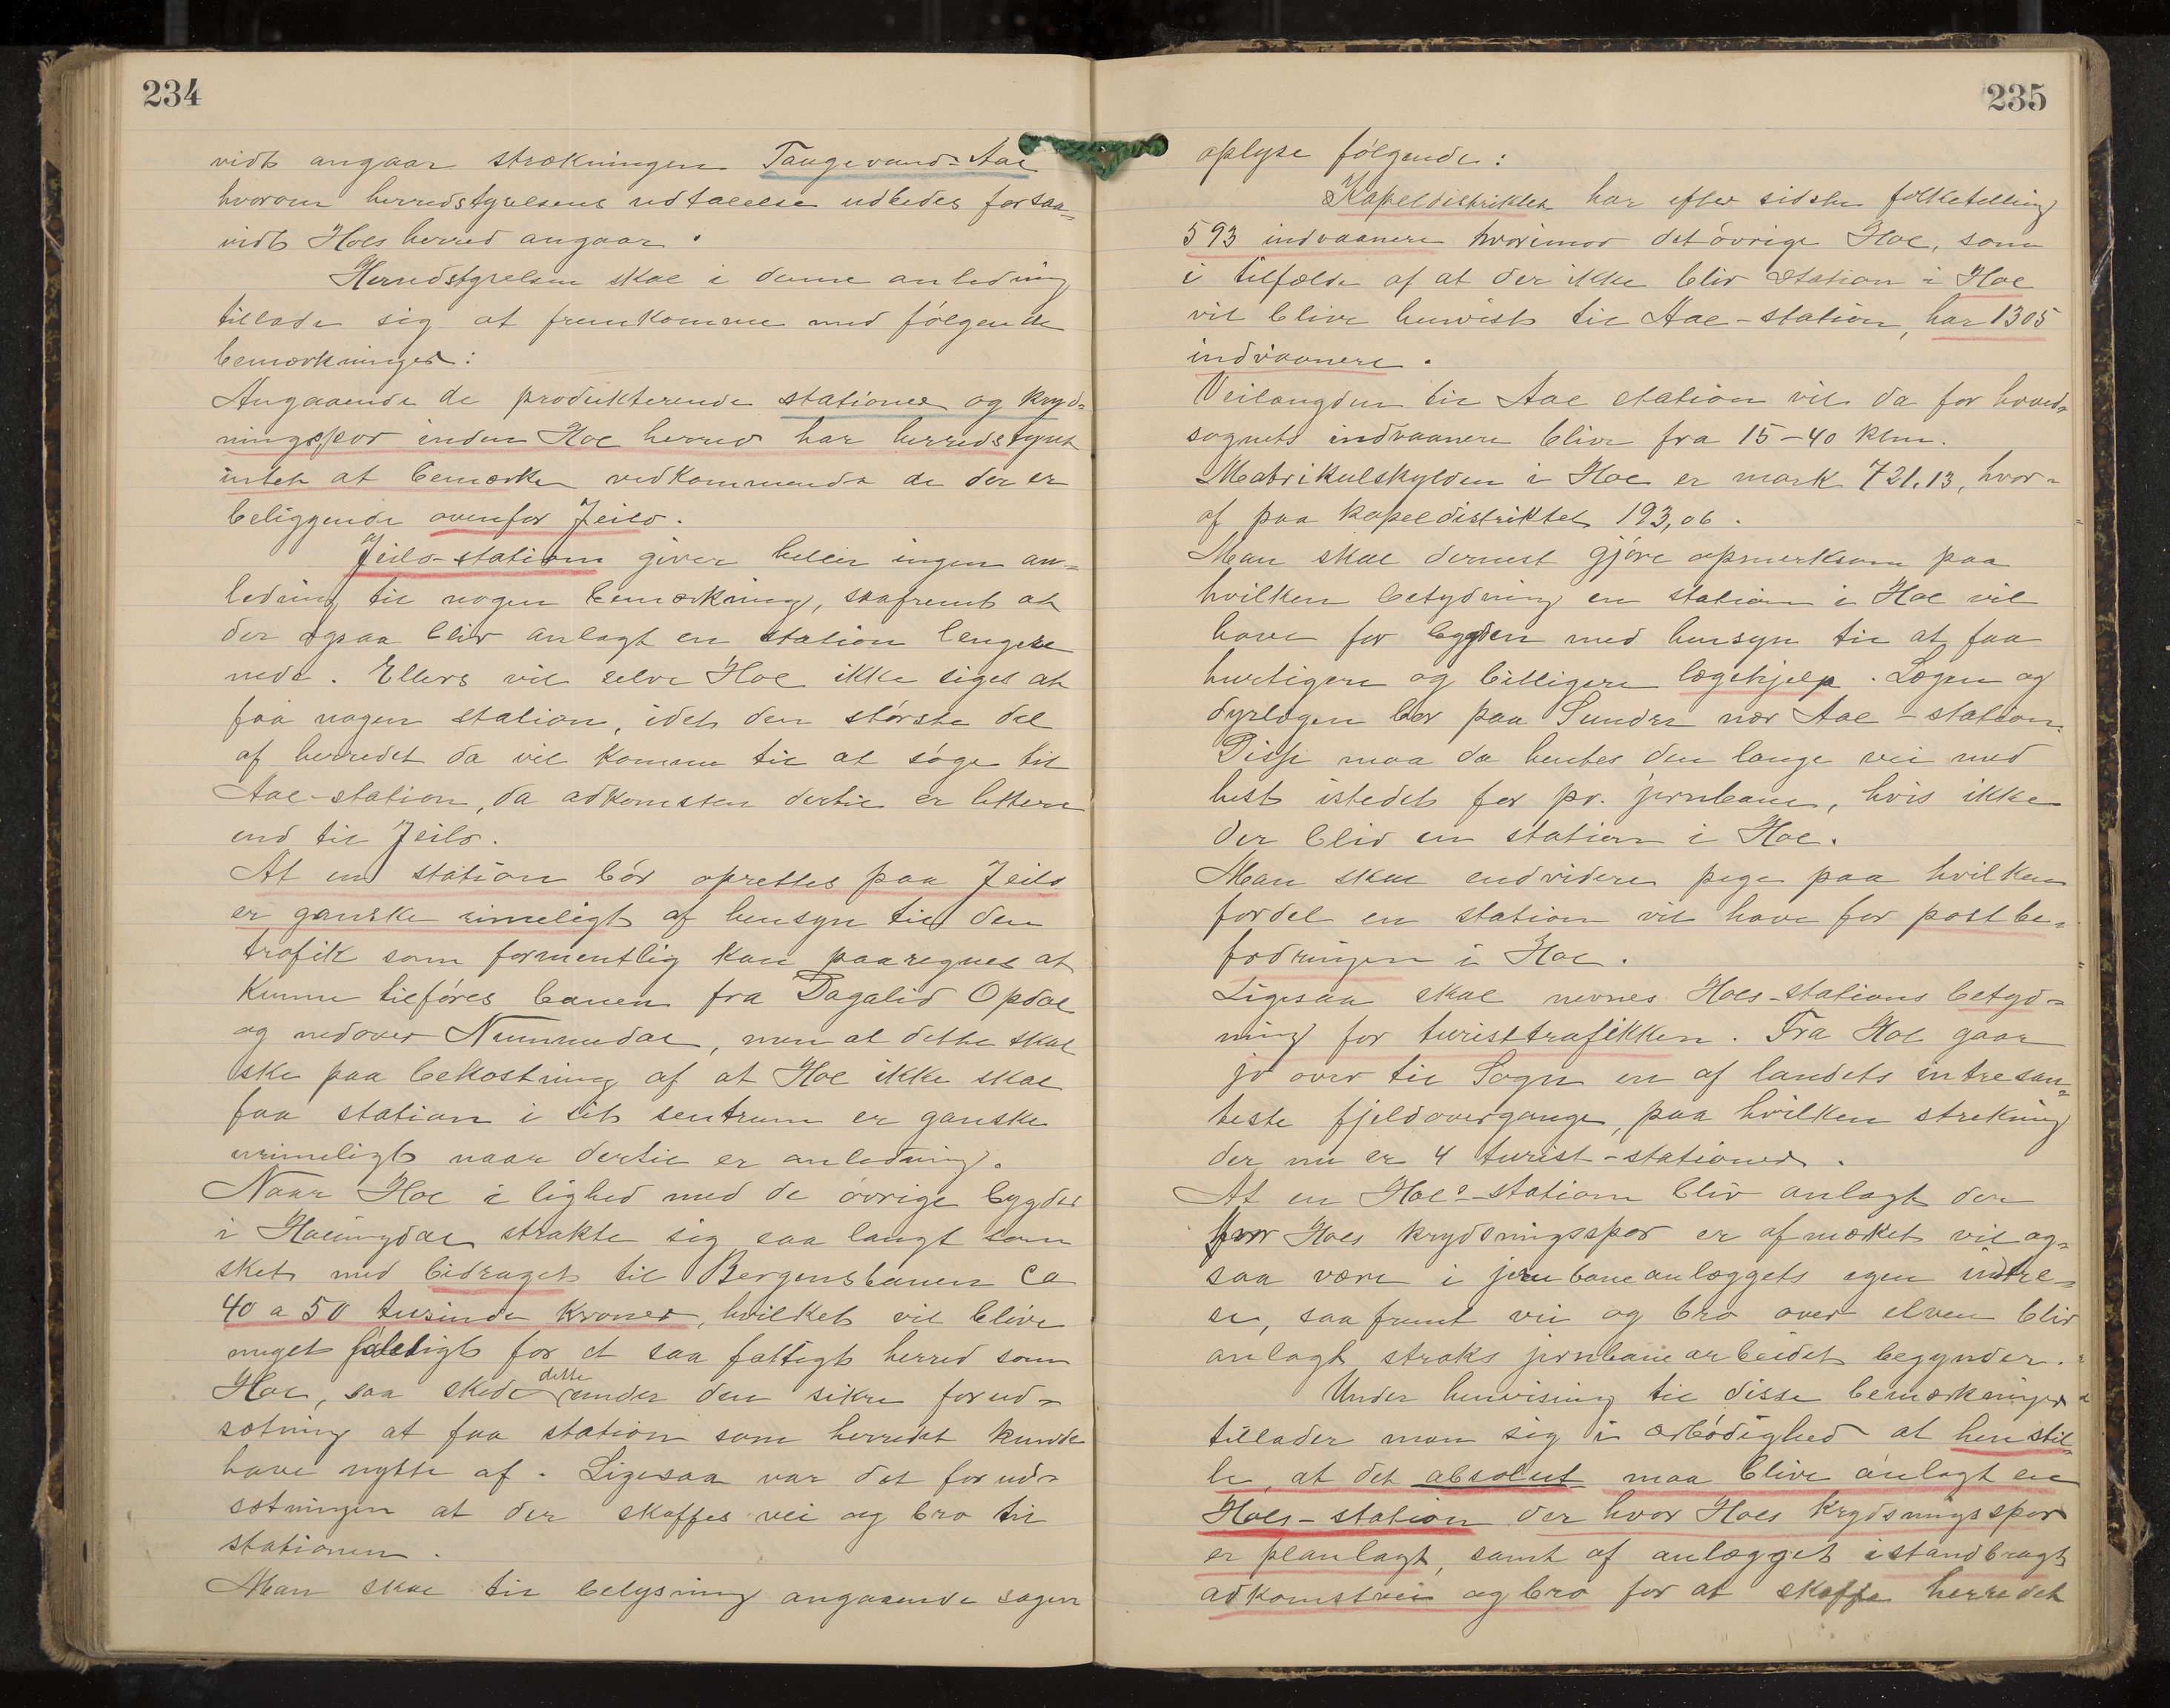 234
vidt angaar strækningen Taugevand-Aal
hvorom herredstyrelsens udtalelse udbedes forsaa-
vidt Hols herred angaar.
Herredstyrelsen skal i denne anledning
tillade sig at fremkomme med følgende
bemærkninger:
Angaaende de projekterende stationer og kryds-
ningsspor inden Hol herred har herredstyret
intet at bemærke vedkommende de der er
beliggende ovenfor Jeilo.
Jeilo-station giver heller ingen an-
ledning til nogen bemærkning, saafremt at
der ogsaa blir anlagt en station længere
nede. Ellers vil selve Hol ikke siges at
faa nogen station, idet den største del
af herredet da vil komme til at søge til
Aal-station, da adkomsten dertil er lettere
end til Jeilo.
At en station bør oprettes paa Jeilo
er ganske rimeligt af hensyn til den
trafik som formentlig kan paaregnes at
kunne tilføres banen fra Dagalid Opdal
og nedover Nummedal, men at dette skal
ske paa bekostning af at Hol ikke skal
faa station i sit sentrum er ganske
urimeligt naar dertil er anledning.
Naar Hol i lighed med de øvrige bygder
i Hallingdal strakte sig saa langt som
sket med bidraget til Bergensbanen ca
40 a 50 tusinde kroner, hvilket vil blive
meget føleligt for et saa fattigt herred som
Hol, saa skede dette under den sikre forud-
sætning at faa station som herredet kunde
have nytte af. Ligesaa var det forud-
sætningen at der skaffes vei og bro til
stationen.
Man skal til belysning angaaende sagen
235
oplyse følgende:
Kapeldistriktet har efter sidste folketelling
593 indvaanere hvorimod det øvrige Hol, som
i tilfælde af at der ikke blir station i Hol
vil blive henvist til Aal-station, har 1305
indvaanere.
Veilængden til Aal station vil da for hoved-
sognets indvaanere blive fra 15-40 klm.
Matrikulskylden i Hol er mark 721,13, hvor-
af paa kapeldistriktet 193,06.
Man skal dernest gjøre opmerksom paa
hvilken betydning en station i Hol vil
have for bygden med hensyn til at faa
hurtigere og billigere lægehjelp. Lægen og
dyrlægen bor paa Sunder nær Aal-station.
Disse maa da hentes den lange vei med
hest istedet for pr. jernbane, hvis ikke
der blir en station i Hol.
Man skal endvidere pege paa hvilken
fordel en station vil have for postbe-
fodringen i Hol.
Ligesaa skal nevnes Hols-stations betyd-
ning for turisttrafikken. Fra Hol gaar
jo over til Sogn en af landets intresan-
teste fjeldovergange, paa hvilken strekning
der nu er 4 turist-stationer.
At en Hols-station blir anlagt der
hvor Hols krydsningsspor er afmerket vil og-
saa være i jernbaneanlæggets egen intre-
se, saafremt vei og bro over elven blir
anlagt straks jernbanearbeidet begynder.
Under henvisning til disse bemærkninger
tillader man sig i ærbødighed at henstil-
le, at det absolut maa blive anlagt en
Hols-station der hvor Hols krydsningsspor
er planlagt, samt af anlægget istandbragt
adkomstvei og bro for at skaffe herredet